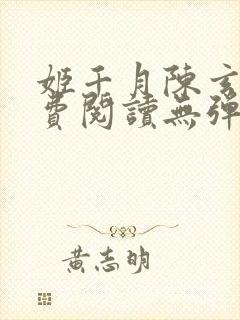 姬千月陳玄
費閱讀無彈
黃志明